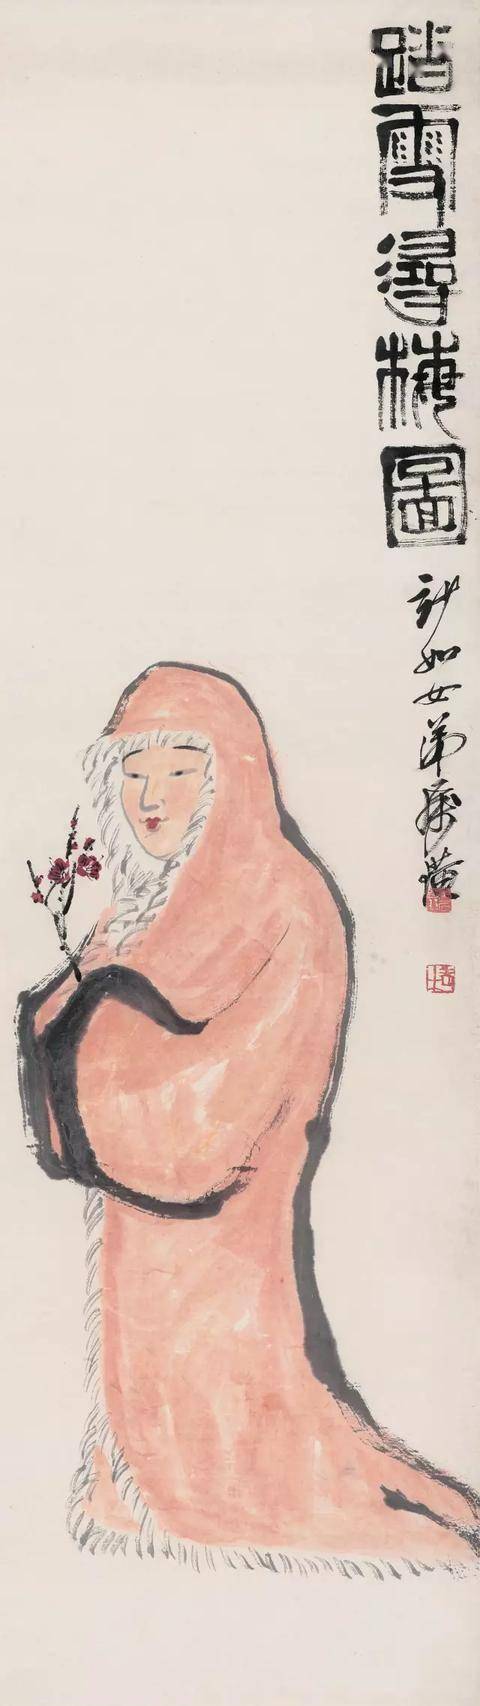 踏雪尋梅圖
如女弟屬璜